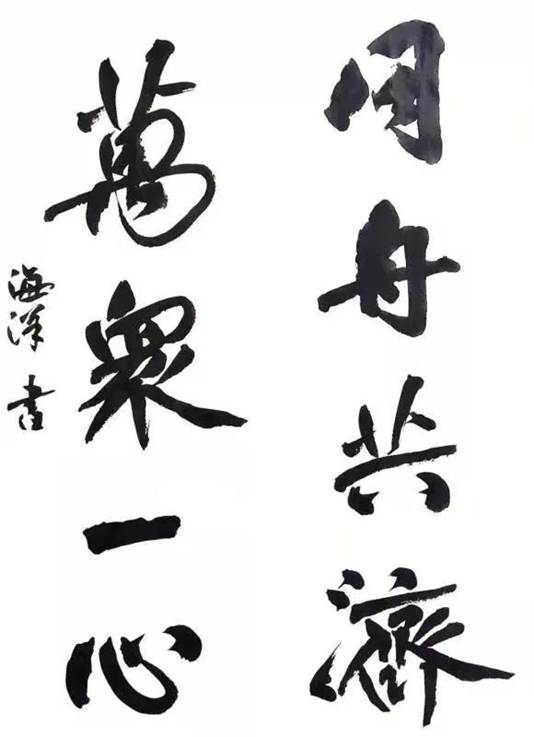 同舟共濟
萬眾一心
海洋書